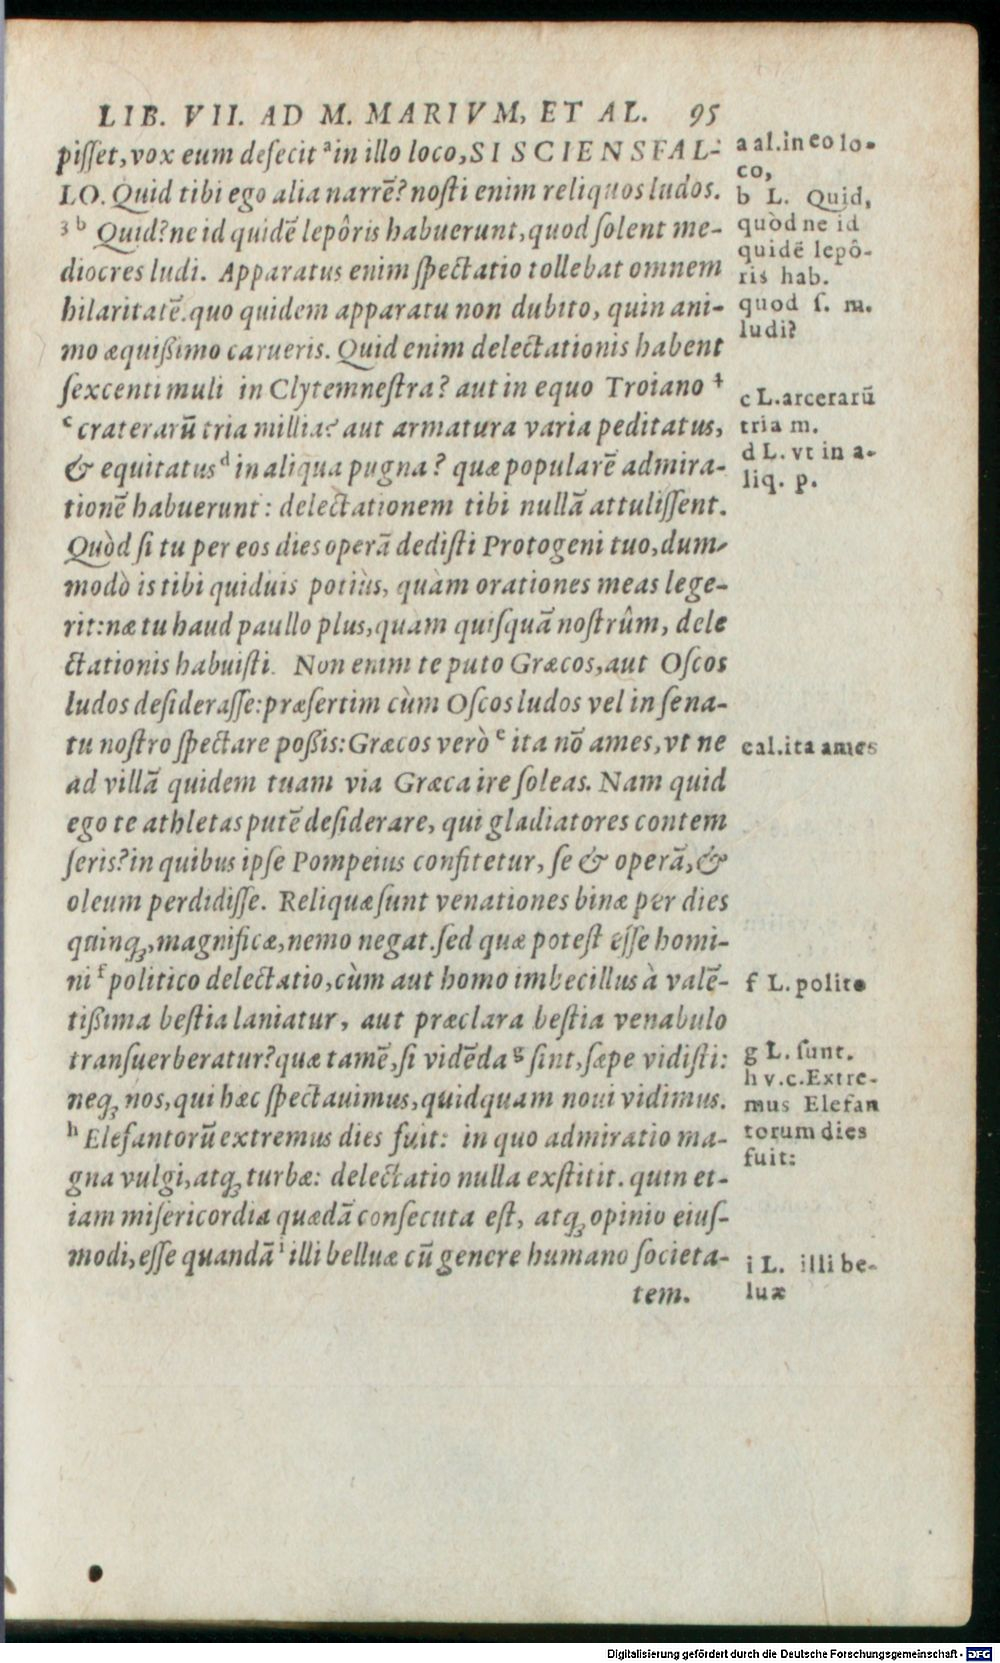 LIB. VII. AD M. MARIVM, ET AL. 95
piſſet, vox eum defecit ᵃ in illo loco, SI SCIENS FAL-
LO. Quid tibi ego alia narrē? noſti enim reliquos ludos.
3 ᵇ Quid? ne id quidē lepôris habuerunt, quod ſolent me-
diocres ludi. Apparatus enim ſpectatio tollebat omnem
hilaritatē. quo quidem apparatu non dubito, quin ani-
mo æquißimo carueris. Quid enim delectationis habent
ſexcenti muli in Clytemneſtra? aut in equo Troiano ⁴
ᶜ craterarū tria millia? aut armatura varia peditatus,
& equitatus ᵈ in aliqua pugna? quæ popularē admira-
tionē habuerunt: delectationem tibi nullā attuliſſent.
Quòd ſi tu per eos dies operā dediſti Protogeni tuo, dum-
modò is tibi quiduis potiùs, quàm orationes meas lege-
rit: næ tu haud paullo plus, quàm quiſquā noſtrûm, dele
ctationis habuiſti. Non enim te puto Græcos, aut Oſcos
ludos deſideraſſe: præſertim cùm Oſcos ludos vel in ſena-
tu noſtro ſpectare poßis: Græcos verò ᵉ ita nō ames, vt ne
ad villā quidem tuam via Græca ire ſoleas. Nam quid
ego te athletas putē deſiderare, qui gladiatores contem
ſeris? in quibus ipſe Pompeius confitetur, ſe & operā, &
oleum perdidiſſe. Reliquæ ſunt venationes binæ per dies
quinq;, magnificæ, nemo negat. ſed quæ poteſt eſſe homi-
ni ᶠ politico delectatio, cùm aut homo imbecillus à valē-
tißima beſtia laniatur, aut præclara beſtia venabulo
tranſuerberatur? quæ tamē, ſi vidēda ᵍ ſint, ſæpe vidiſti:
neq; nos, qui hæc ſpectauimus, quidquam noui vidimus.
ʰ Elefantorū extremus dies fuit: in quo admiratio ma-
gna vulgi, atq; turbæ: delectatio nulla exſtitit. quin et-
iam miſericordia quædā conſecuta eſt, atq; opinio eiuſ-
modi, eſſe quandā ⁱ illi belluæ cū genere humano ſocieta-
tem.
a al. in eo lo-
co,
b L. Quid,
quòd ne id
quidē lepô-
ris hab.
quod ſ. m.
ludi?
c L. arcerarū
tria m.
d L. vt in a-
liq. p.
e al. ita ames
f L. polito
g L. ſunt.
h v. c. Extre-
mus Elefan
torum dies
fuit:
i L. illi be-
luæ
Digitalisierung gefördert durch die Deutsche Forschungsgemeinschaft - DFG